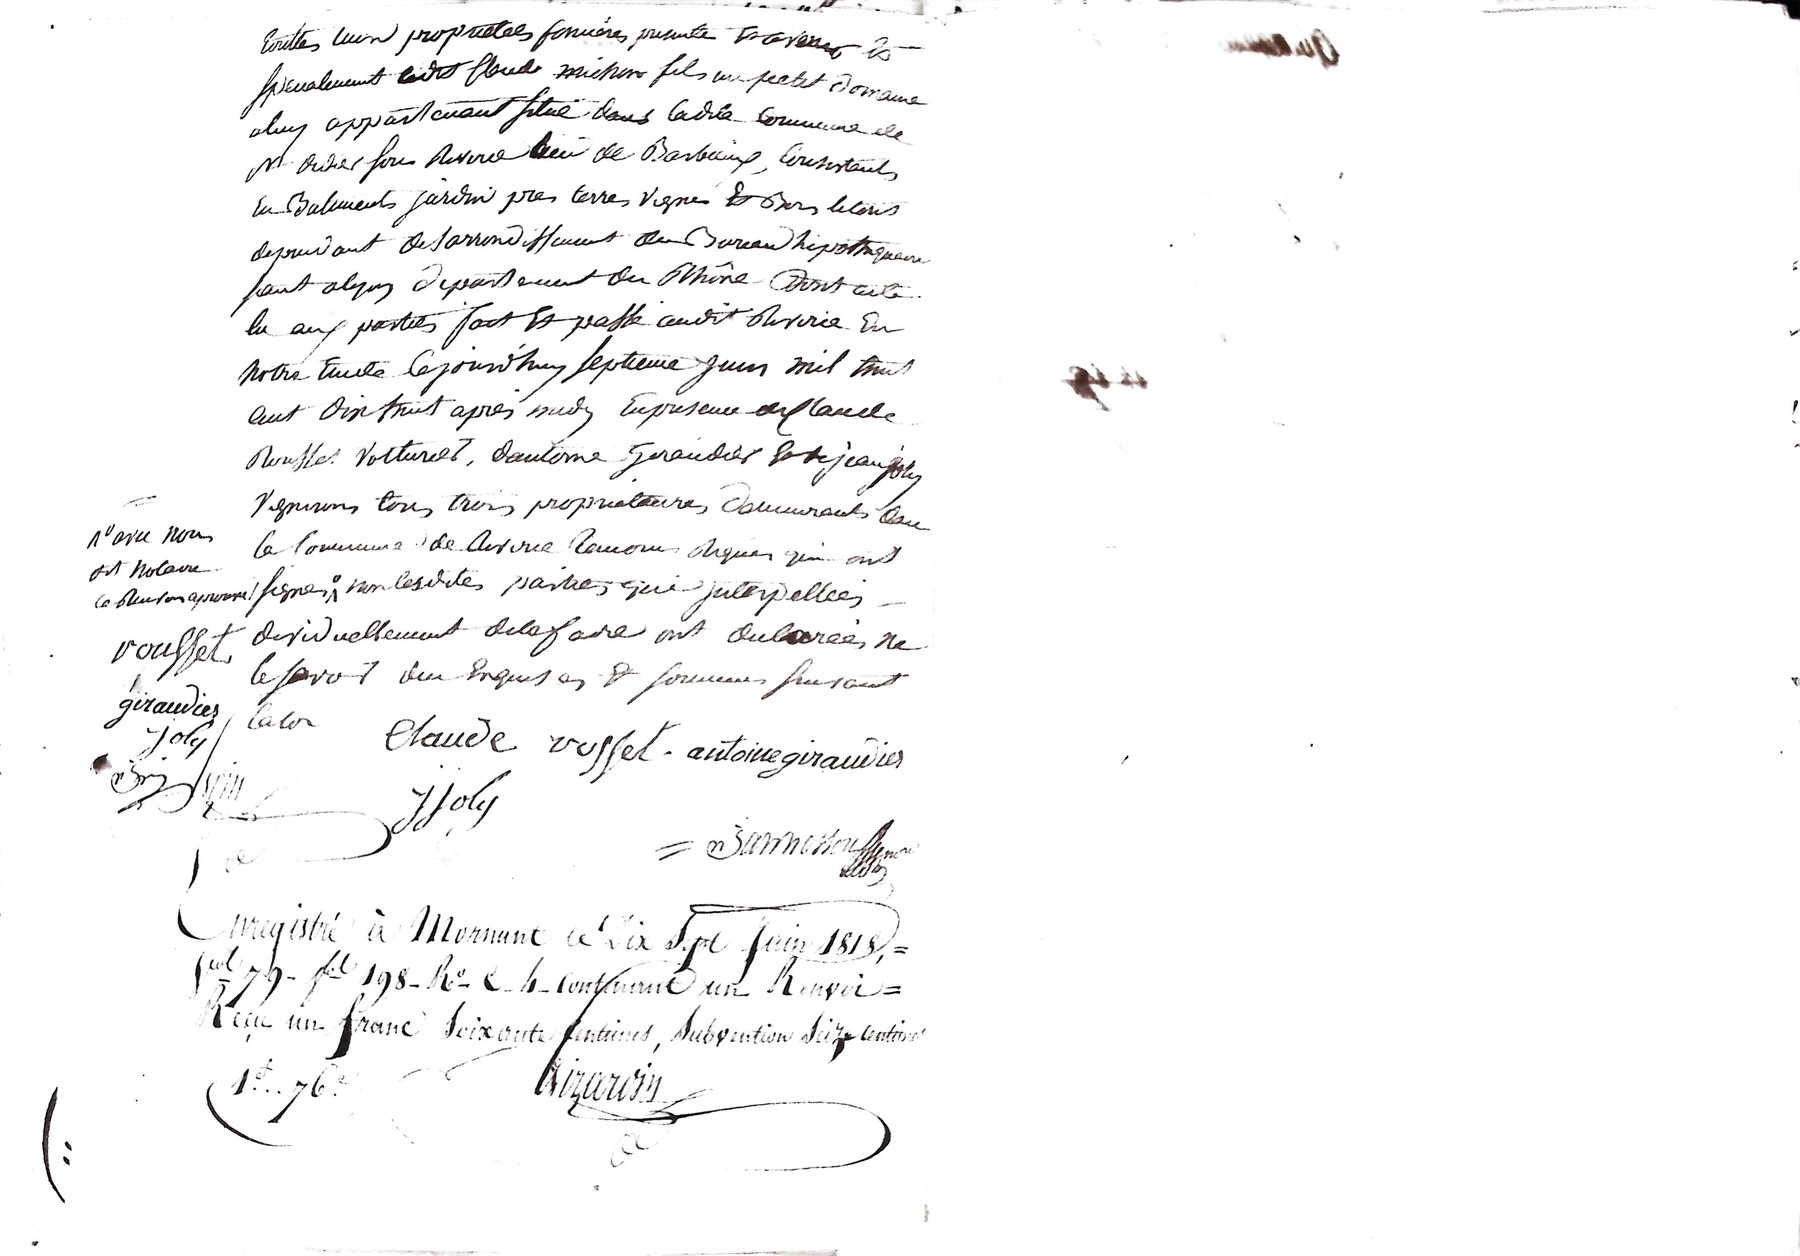 touttes leurs propriettées foncières presente et avenir Et
specialement ledit Claude michon fils un petit Domaine
aluy appartenant situé dans ladite Commune de
st didier sous Riverie lieu de Barbieux, Consistant
En Batiments jardin pres terres vignes Et Bois le tout
dependant del'arrondissement du Bureau hipothequaire
seant alyon Département du Rhône Dont acte
lu aux parties fait Et passé audit Riverie En
notre Etude Cejourd'huy septieme juin mil huit
cent dix huit après midy En presence de Claude
Rousset voiturier, d'antoine Giraudier Et de jean joly
vignerons tous trois proprietaires Demeurants dans
la Commune de Riverie Temoins Requis qui ont
signés non lesdites parties qui interpellées
dividuellement dela faire ont declarées ne
le savoir de ce Enquises Et sommées suivant
la loi
n° avec nous
dit notaire
le Renvoi aprouvé
rousset
giraudier
j joly
Claude rousset - antoine giraudier
j joly
Enregistré à Mornant ce Dix Sept Juin 1818, =
fol 79 - 198 - Ro - C - 4 - contenant un Renvoi =
Reçu un franc Soixante Centimes, Subvention Seize Centimes
1f.. 76c
Girardin